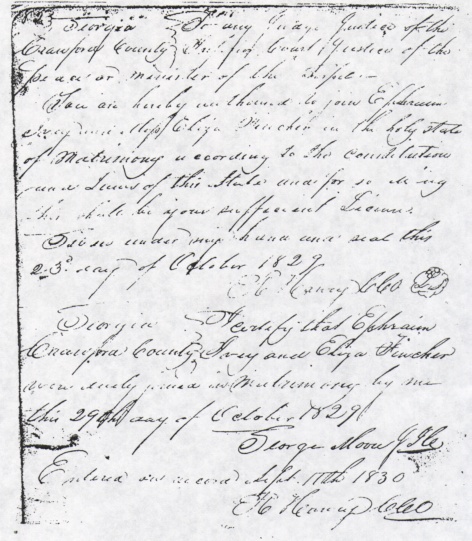 Georgia } To any Judge Justice of the
Crawford County } Inferior Court Justice of the
peace or minister of the Gospel
You are hereby authorised to join Ephraim
Ivey and Miss Eliza Fincher in the holy state
of Matrimony according to the constitution
and Laws of this State and for so doing
this shall be your sufficient License
Given under my hand and seal this
23d day of October 1829
H Henry CCO LS
Georgia } I certify that Ephraim
Crawford County } Ivey and Eliza Fincher
were duly joined in Matrimony by me
this 29th day of October 1829
George Moore J
Entered on record Sept. 11th 1830
H Henry CCO